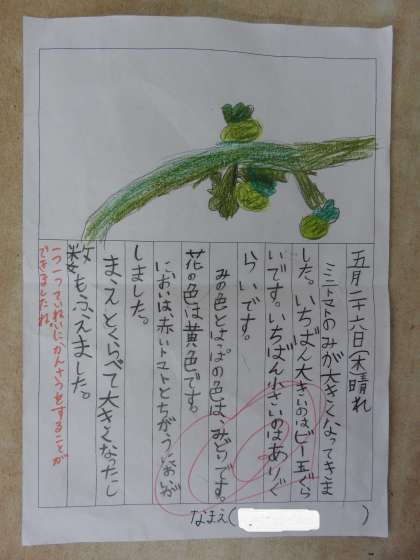 五月二十八日(木)晴れ
ミニトマトのみが大きくなってきま
した。いちばん大きいのはビー玉ぐら
いです。いちばん小さいのはありぐ
らいです。
みの色とはっぱの色は、みどりです。
花の色は黄色です。
においは、赤いトマトとちがうにおいが
しました。
まえとくらべて大きくなったし
数もふえました。
一つ一つていねいにかんさつをすることが
できましたね。
なまえ( )